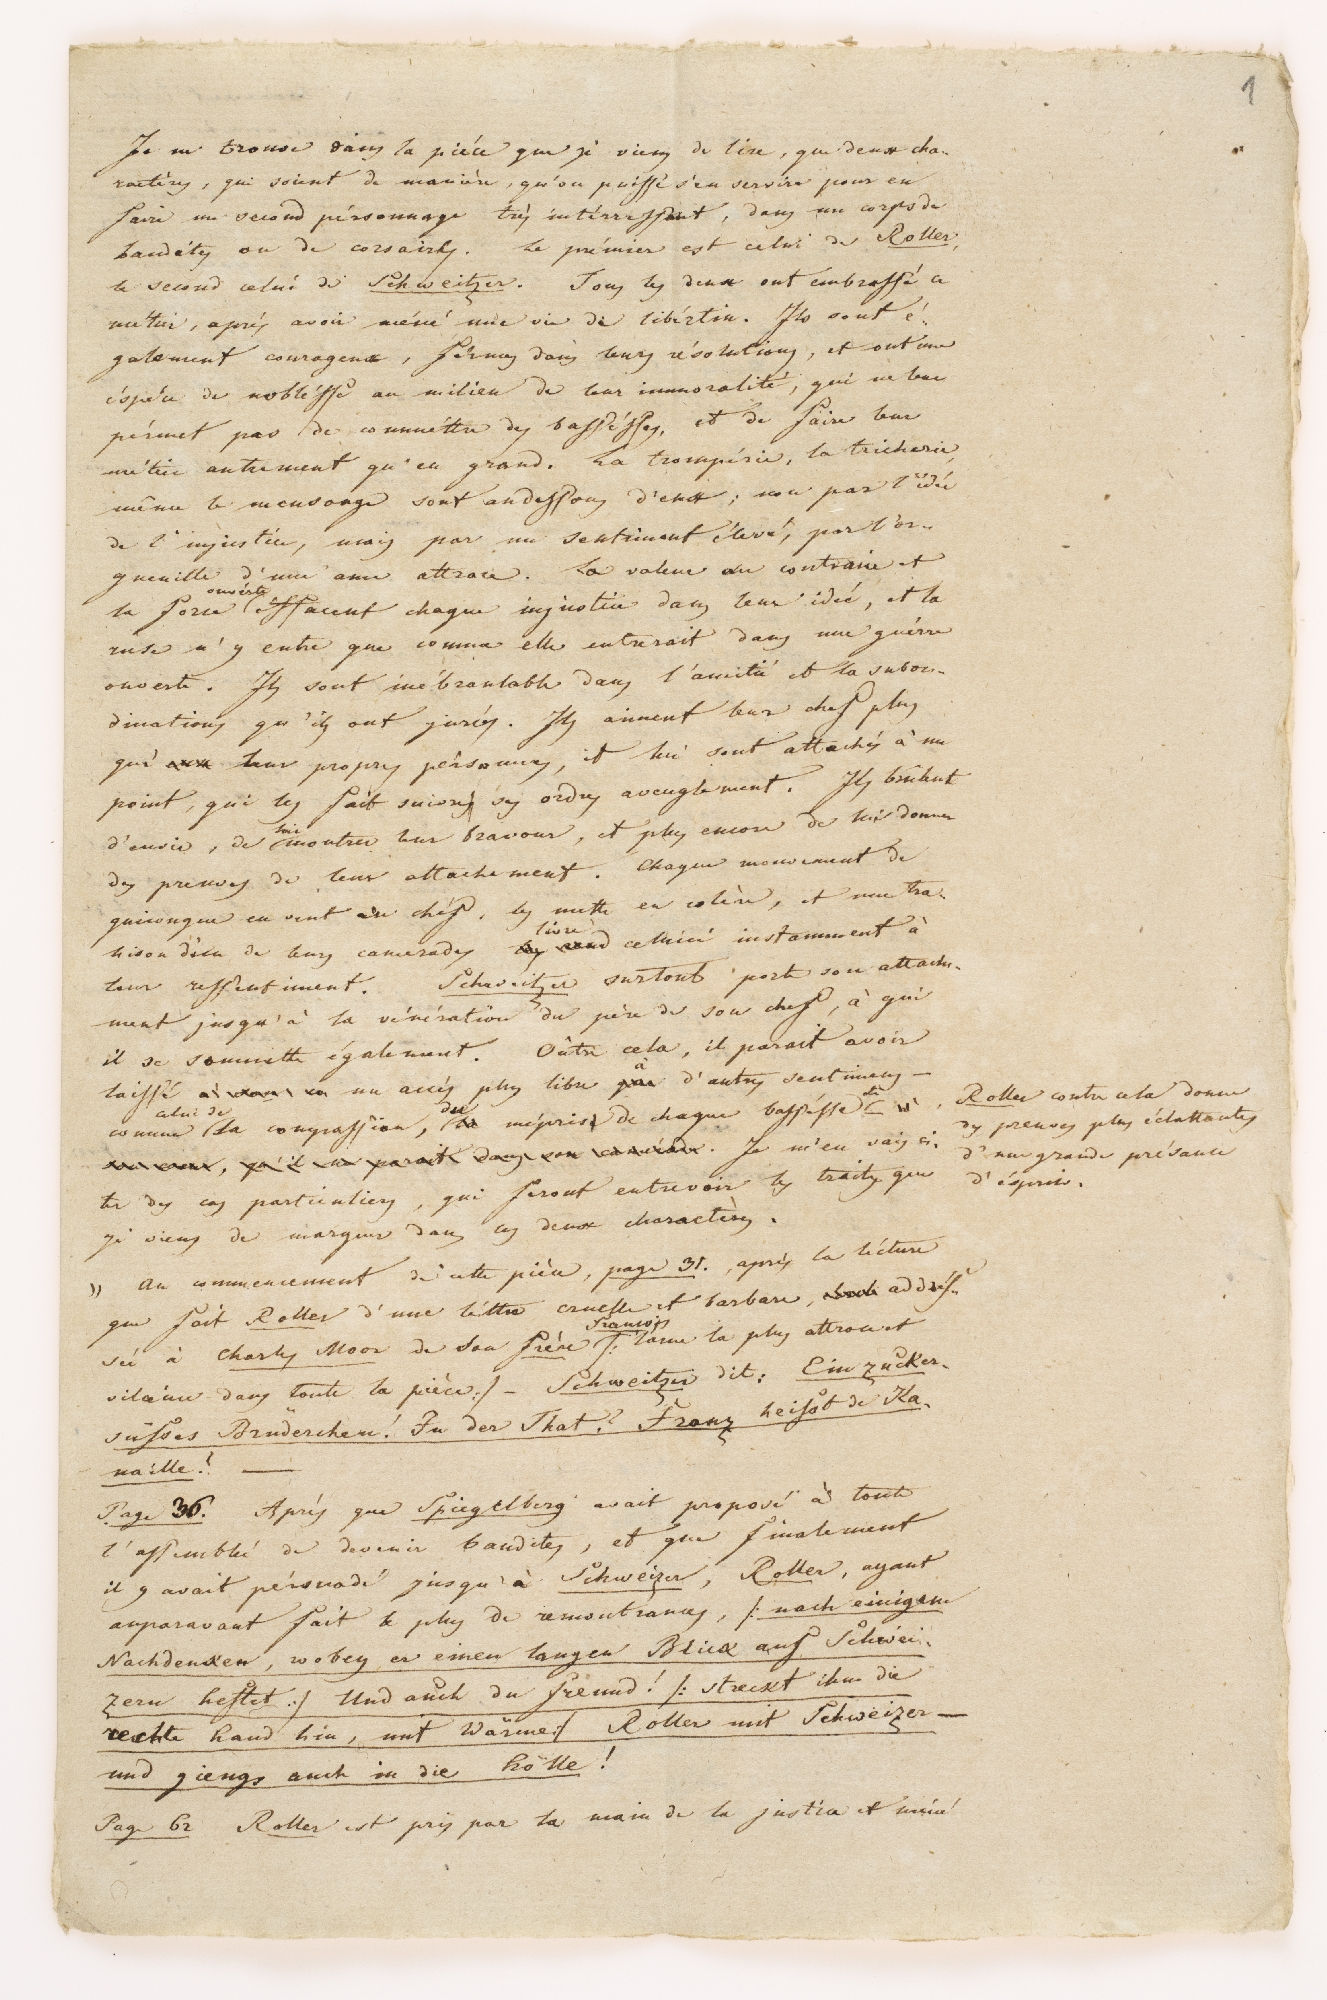 1
Je ne trouve dans la piéce que je viens de lire, que deux cha-
ractéres, qui soient de maniére, qu'on puisse s'en servire pour en
faire un second pérsonnage trés intérressant, dans un corps de
bandits ou de corsaires. Le prémier est celui de Roller,
le second celui de Schweitzer. Tous les deux ont embrassé ce
métier, aprés avoir méné une vie de libértin. Ils sont é-
galement courageux, férmes dans leurs résolutions, et ont une
éspéce de nobléssé au milieu de leur immoralité, qui ne leur
pérmet pas de commettre des basséssés, et de faire leur
métier autrement qu'en grand. La trompérie, la tricherie,
même le mensonge sont audessous d'eux; non par l'idée
de l'injustice, mais par un sentiment élevé, par l'or-
gueuille d'une ame attroce. La valeur au contraire et
la force ouvérte éffacent chaque injustice dans leur idée, et la
ruse n'y entre que comme elle entrerait dans une guérre
ouverte. Ils sont inébranlable dans l'amitié et la subor-
dinations qu'ils ont jurées. Ils aiment leur chef plus
que leur propres pérsonnes, et lui sont attachés à un
point, qui les fait suivre ses ordres aveuglement. Ils brûlent
d'envie, de lui montrer leur bravour, et plus encore de lui donner
des preuves de leur attachement. Chaque mouvement de
quiconque en veut au chéf, les mette en colère, et une tra-
hison d'un de leurs camerades livre celuici instamment à
leur ressentiment. Schweitzer surtout porte son attache-
ment jusqu'à la vénération du pére de son chef, à qui
il se soumette également. Oûtre cela, il parait avoir
laissé un accés plus libre à d'autres sentimens —
comme celui de la compassion, du mépris de chaque basséssé
Roller contre cela donne
des preuves plus éclattantes
d'une grande présance
d'ésprit.
. Je m'en vais ci-
ter des cas particuliers, qui feront entrevoir les traits que
je viens de marquer dans ces deux charactères.
" Au commencement de cette pièce, page 31. aprés la lécture
que fait Roller d'une léttre cruelle et barbare, addrés-
sée à Charles Moor de son frére François /: l'ame la plus attroce et
vilaine dans toute la pièce :/ — Schweitzer dit: Ein zucker-
süsses Brüderchen! In der That! Franz heisst die Ka-
naille! —
Page 36. Aprés que Spiegelberg avait proposé à toute
l'assemblée de devenir bandites, et que finalement
il y avait pérsuadé jusqu'à Schweizer, Roller, ayant
auparavant fait le plus de remontrances, /: nach einigem
Nachdenken, wobey er einen langen Blick auf Schwei-
zern heftet :/ Und auch du freund! /: streckt ihm die
rechte hand hin, mit Wärme :/ Roller mit Schweizer —
und giengs auch in die hölle!
Page 62 Roller est pris par la main de la justice et méné